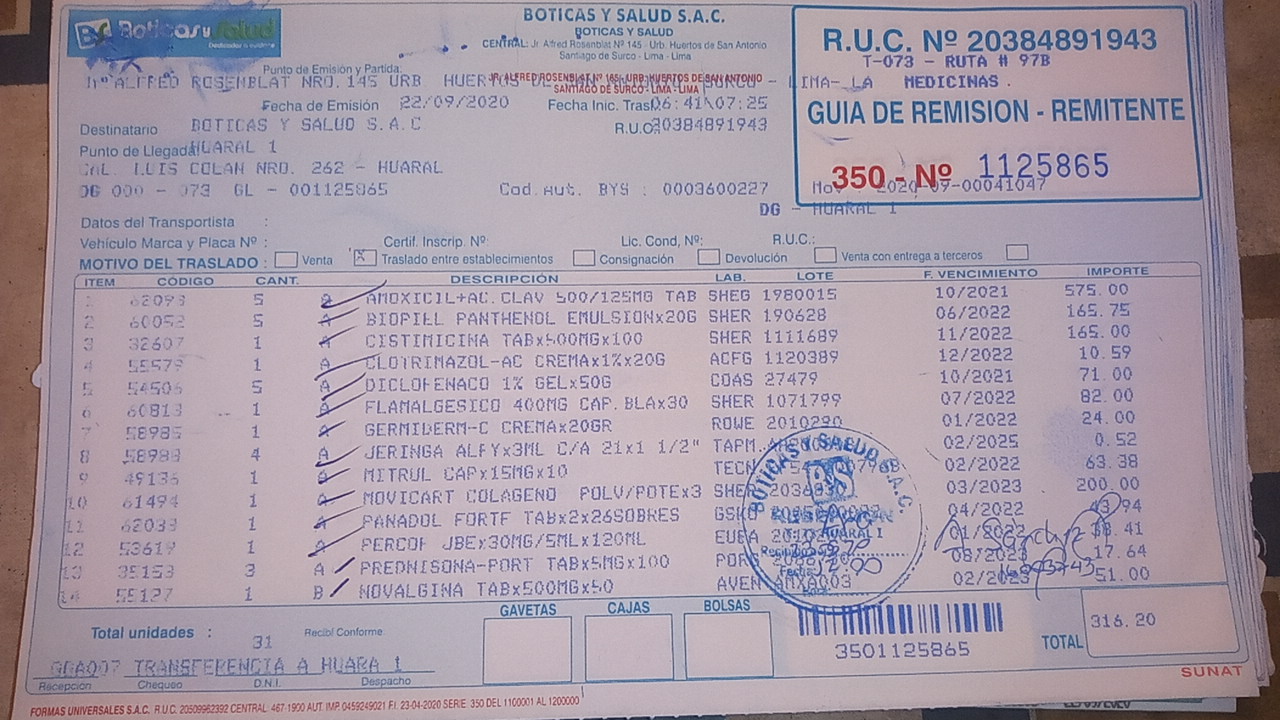 Boticas y Salud
BOTICAS Y SALUD S.A.C.
BOTICAS Y SALUD
CENTRAL: Jr. Alfred Rosenblat Nº 145 - Urb. Huertos de San Antonio
Santiago de Surco - Lima - Lima
R.U.C. Nº 20384891943
T-073 - RUTA # 97B
MEDICINAS .
GUIA DE REMISION - REMITENTE
350 - Nº 1125865
Mov 2020-09-00041047
DG - HUARAL 1
Punto de Emisión y Partida:
JR. ALFRED ROSENBLAT Nº 165 - URB. HUERTOS DE SAN ANTONIO
SANTIAGO DE SURCO - LIMA - LIMA
ALFRED ROSENBLAT NRO.145 URB HUERTOS DE SURCO - LIMA- LA
Fecha de Emisión 22/09/2020 Fecha Inic. Tras 06:41\07:25
Destinatario BOTICAS Y SALUD S.A.C R.U.C 20384891943
Punto de Llegada HUARAL 1
CAL. LUIS COLAN NRO. 262 - HUARAL
DG 000 - 073 GL - 001125865 Cod.Aut. BYS : 0003600227
Datos del Transportista :
Vehículo Marca y Placa Nº : Certif. Inscrip. Nº: Lic. Cond, Nº: R.U.C.:
MOTIVO DEL TRASLADO : Venta X Traslado entre establecimientos Consignación Devolución Venta con entrega a terceros
ITEM CÓDIGO CANT. DESCRIPCIÓN LAB. LOTE F. VENCIMIENTO IMPORTE
1 62093 5 A AMOXICIL+AC.CLAV 500/125MG TAB SHEG 1980015 10/2021 575.00
2 60052 5 A BIOPIEL PANTHENOL EMULSIONx20G SHER 190628 06/2022 165.75
3 32607 1 A CISTIMICINA TABx500MGx100 SHER 1111689 11/2022 165.00
4 55579 1 A CLOTRIMAZOL-AC CREMAx1%x20G ACFG 1120389 12/2022 10.59
5 54506 5 A DICLOFENACO 1% GELx50G COAS 27479 10/2021 71.00
6 60813 1 A FLAMALGESICO 400MG CAP.BLAx30 SHER 1071799 07/2022 82.00
7 58985 1 A GERMIDERM-C CREMAx20GR ROWE 2010290 01/2022 24.00
8 58988 4 A JERINGA ALFYx3ML C/A 21x1 1/2" TAPM 02/2025 0.52
9 49136 1 A MITRUL CAPx15MGx10 TECN 02/2022 63.38
10 61494 1 A MOVICART COLAGENO POLV/POTEx3 SHE 03/2023 200.00
11 62033 1 A PANADOL FORTE TABx2x26SOBRES GSK 04/2022
12 53619 1 A PERCOF JBEx30MG/5MLx120ML 01/2022
13 35153 3 A PREDNISONA-PORT TABx5MGx100 PORT 08/2023 17.64
14 55127 1 B NOVALGINA TABx500MGx50 AVEN 02/2023 51.00
BOTICAS Y SALUD S.A.C.
HUARAL 1
Total unidades : 31 Recibí Conforme
GAVETAS CAJAS BOLSAS
3501125865
TOTAL 316.20
TRANSFERENCIA A HUARA 1
Recepción Chequeo D.N.I. Despacho
SUNAT
FORMAS UNIVERSALES S.A.C. R.U.C. 20509962392 CENTRAL: 467-1900 AUT. IMP. 0459249021 F.I. 23-04-2020 SERIE 350 DEL 1100001 AL 1200000